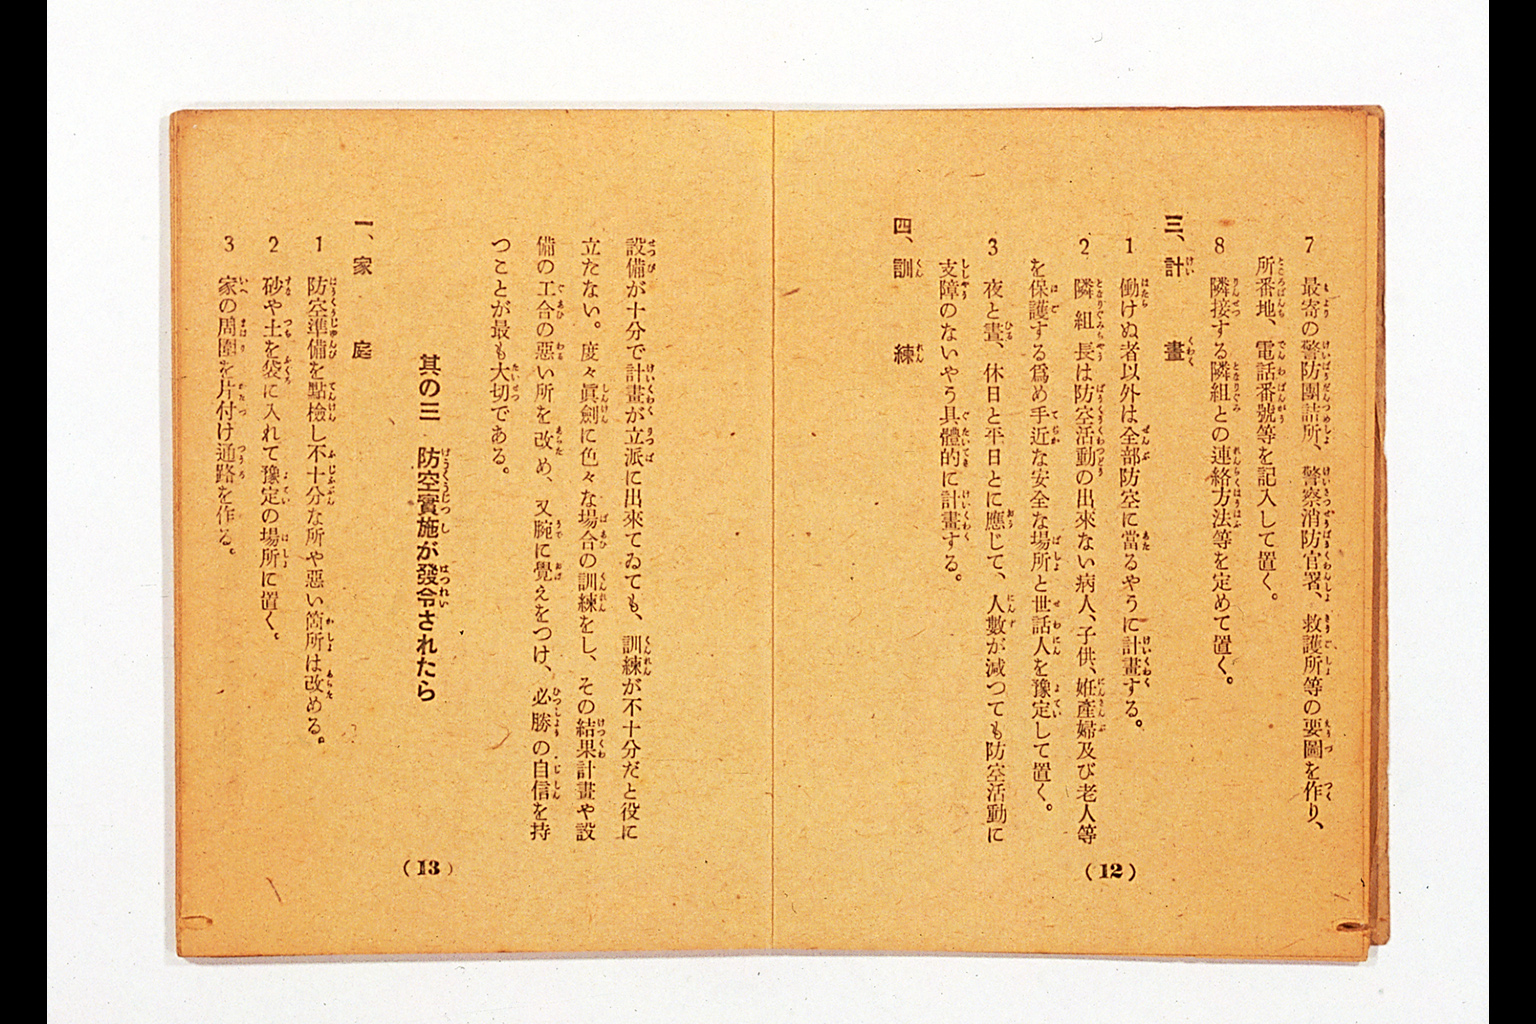 7 最寄の警防團詰所、警察消防官署、救護所等の要圖を作り、
所番地、電話番號等を記入して置く。
8 隣接する隣組との連絡方法等を定めて置く。
三、計畫
1 働けぬ者以外は全部防空に當るやうに計畫する。
2 隣組長は防空活動の出來ない病人、子供、姙産婦及び老人等
を保護する爲め手近な安全な場所と世話人を豫定して置く。
3 夜と晝、休日と平日とに應じて、人數が減つても防空活動に
支障のないやう具體的に計畫する。
四、訓練
(12)
設備が十分で計畫が立派に出來てゐても、訓練が不十分だと役に
立たない。度々眞劍に色々な場合の訓練をし、その結果計畫や設
備の工合の惡い所を改め、又腕に覺えをつけ、必勝の自信を持
つことが最も大切である。
其の三 防空實施が發令されたら
一、家庭
1 防空準備を點檢し不十分な所や惡い箇所は改める。
2 砂や土を袋に入れて豫定の場所に置く。
3 家の周圍を片付け通路を作る。
(13)